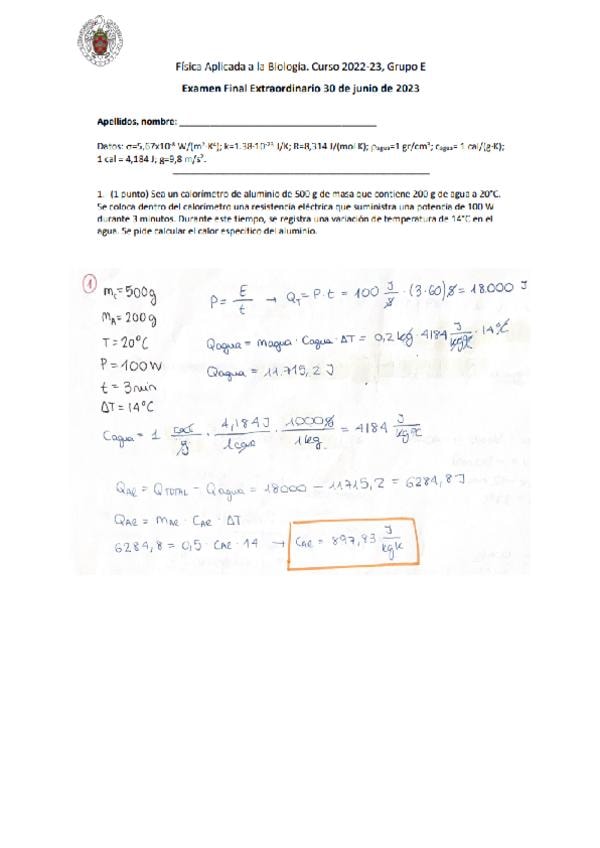 Física Aplicada a la Biología. Curso 2022-23, Grupo E
Examen Final Extraordinario 30 de junio de 2023
Apellidos, nombre:
Datos: σ=5,67x10⁻⁸ W/(m²·K⁴); k=1.38·10⁻²³ J/K; R=8,314 J/(mol K); ρagua=1 gr/cm³; cagua= 1 cal/(g·K);
1 cal = 4,184 J; g=9,8 m/s².
1. (1 punto) Sea un calorímetro de aluminio de 500 g de masa que contiene 200 g de agua a 20°C.
Se coloca dentro del calorímetro una resistencia eléctrica que suministra una potencia de 100 W
durante 3 minutos. Durante este tiempo, se registra una variación de temperatura de 14°C en el
agua. Se pide calcular el calor específico del aluminio.
1
mc = 500g
mA = 200g
T = 20°C
P = 100W
t = 3min
ΔT = 14°C
P = E/t → QT = P·t = 100 J/s · (3·60) s = 18.000 J
Qagua = magua · Cagua · ΔT = 0,2 kg · 4184 J/kg°C · 14°C
Qagua = 11.715,2 J
Cagua = 1 cal/g · 4,184J/1cal · 1000g/1kg = 4184 J/kg°C
QAl = QTOTAL - Qagua = 18000 - 11715,2 = 6284,8 J
QAl = mAl · CAl · ΔT
6284,8 = 0,5 · CAl · 14 → CAl = 897,83 J/kgK